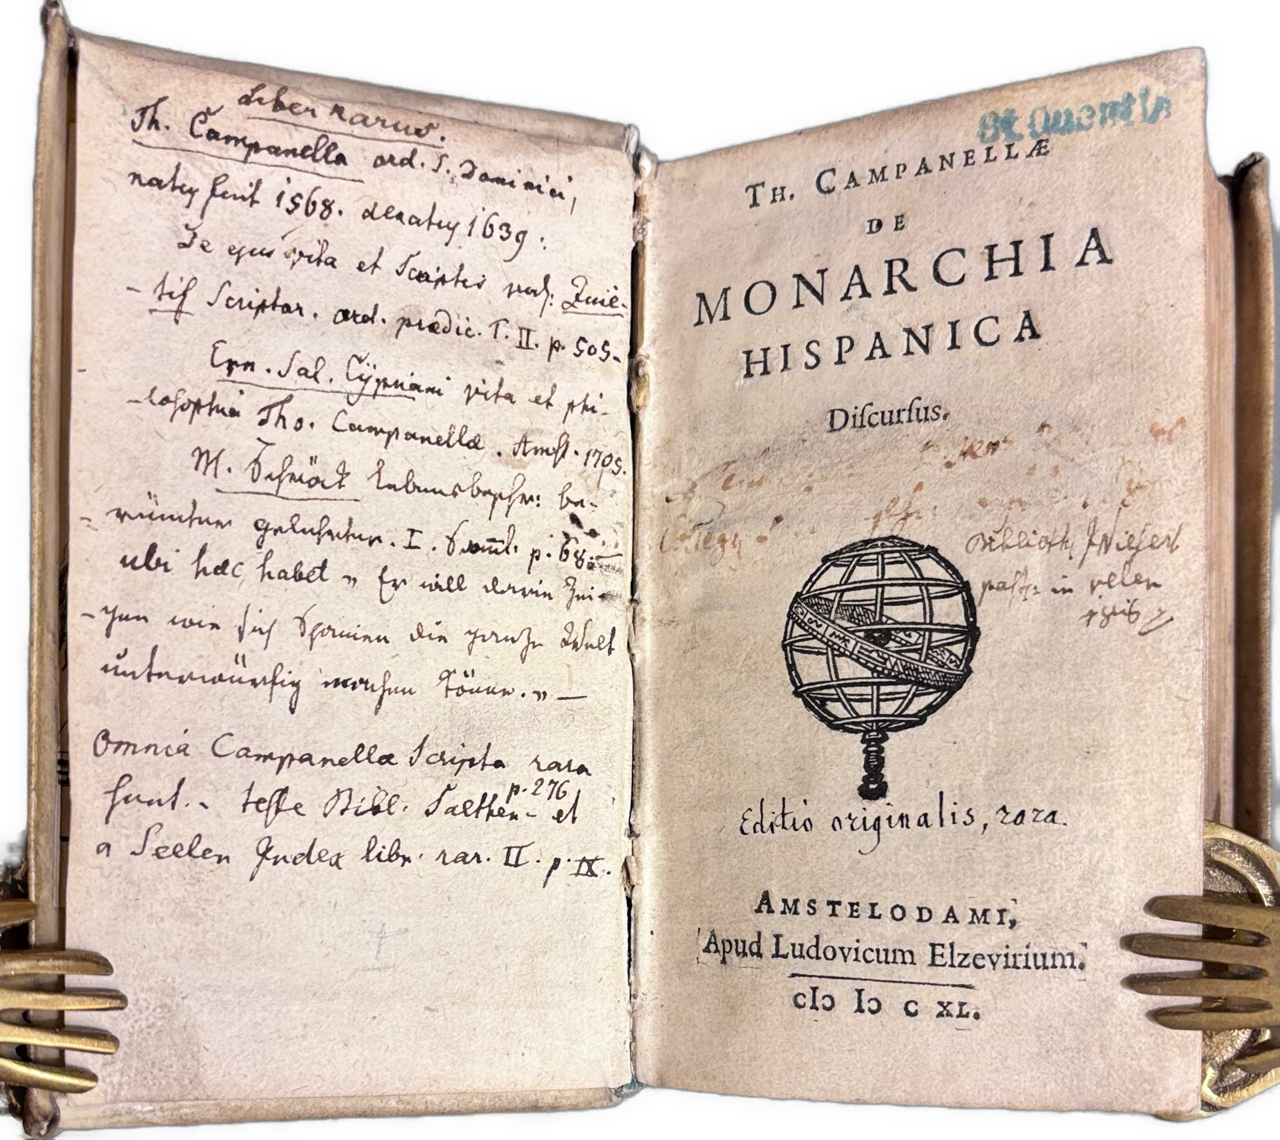 Liber rarus.
Th. Campanella ord. S. Dominici,
natus fuit 1568. denatus 1639:
De ejus vita et Scriptis vid. Quie-
-tif Scriptor. ord. prædic. T. II. p. 505.
Ern. Sal. Cÿpriani vita et phi-
-losophia Tho. Campanellæ. Amst. 1705.
M. Schröck Lebensbeschr: be-
-rümter gelehrter. I. Samml. p. 68.
ubi hæc habet „ Er will darin zei-
-gen wie sich Spanien die ganze Welt
unterwürfig machen könne.„ —
Omnia Campanellæ Scripta rara
sunt. - teste Bibl. Salthen. p. 276 et
a Seelen Index libr. rar. II. p. IX.
St. Quentin
TH. CAMPANELLÆ
DE
MONARCHIA
HISPANICA
Diſcurſus.
Biblioth. J Niesert
past. in velen
Editio originalis, rara.
AMSTELODAMI,
Apud Ludovicum Elzevirium.
cIↄ Iↄ C XL.